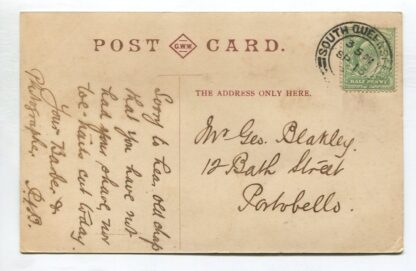 POST CARD.
G.W.W.
SOUTH QUEENS
HALF PENNY
THE ADDRESS ONLY HERE.
Sorry to hear, old chap
that you have not
had your shave, nor
toe-nails cut today.
Your Barber &
Photographer.
Mr Geo. Blakley.
12 Bath Street
Portobello.